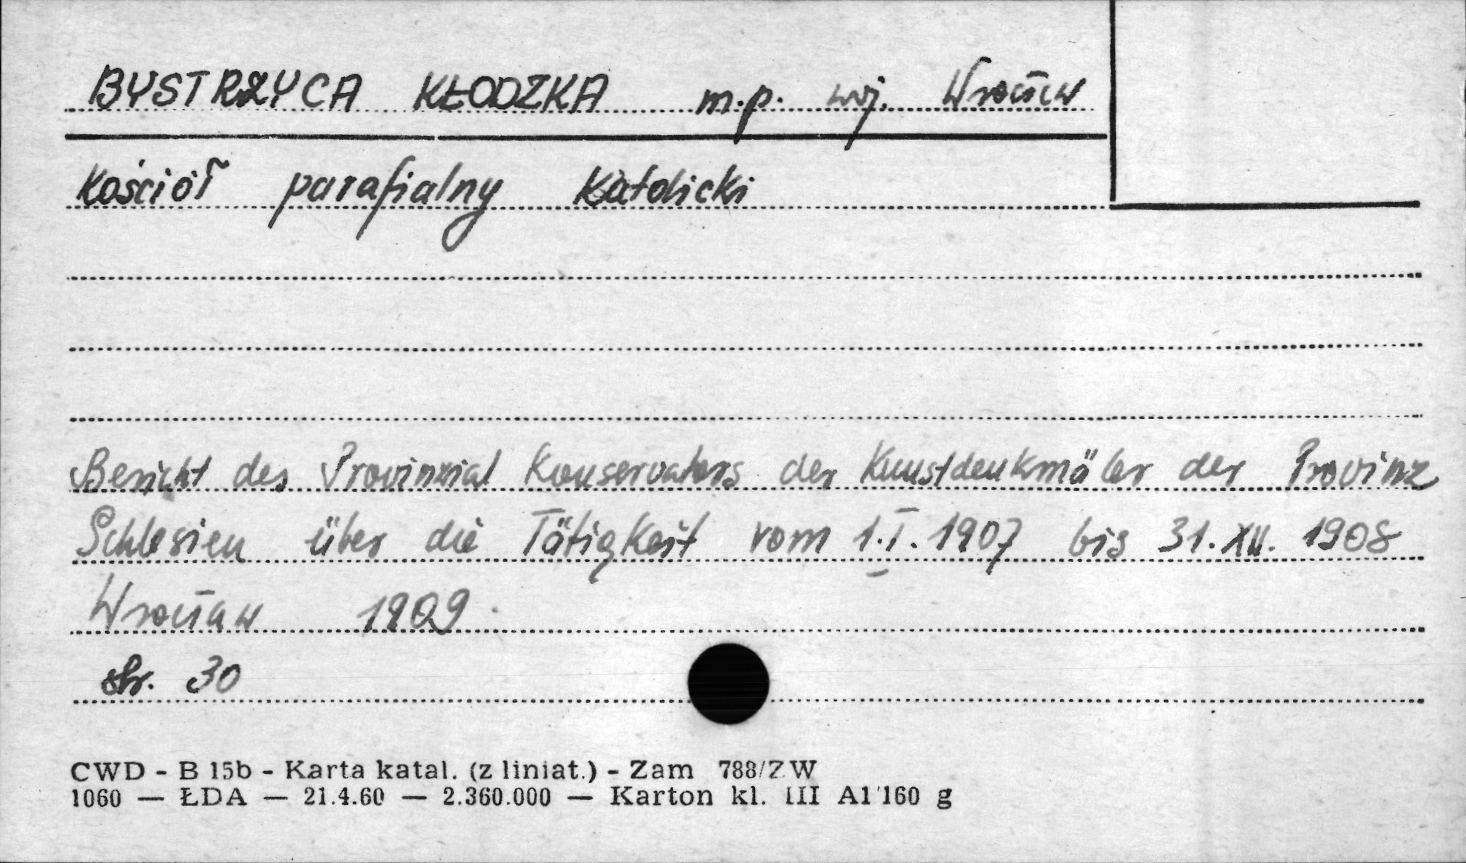 BYSTRZYCA KŁODZKA m.p. woj. Wrocław
Kościół parafialny Katolicki
Bericht des Provinzial Konservators der Kunstdenkmäler der Provinz
Schlesien über die Tätigkeit vom 1.I.1907 bis 31.XII.1908
Wrocław 1909.
str. 30
CWD - B 15b - Karta katal. (z liniat.) - Zam 788/ZW
1060 — ŁDA — 21.4.60 — 2.360.000 — Karton kl. III A1 160 g